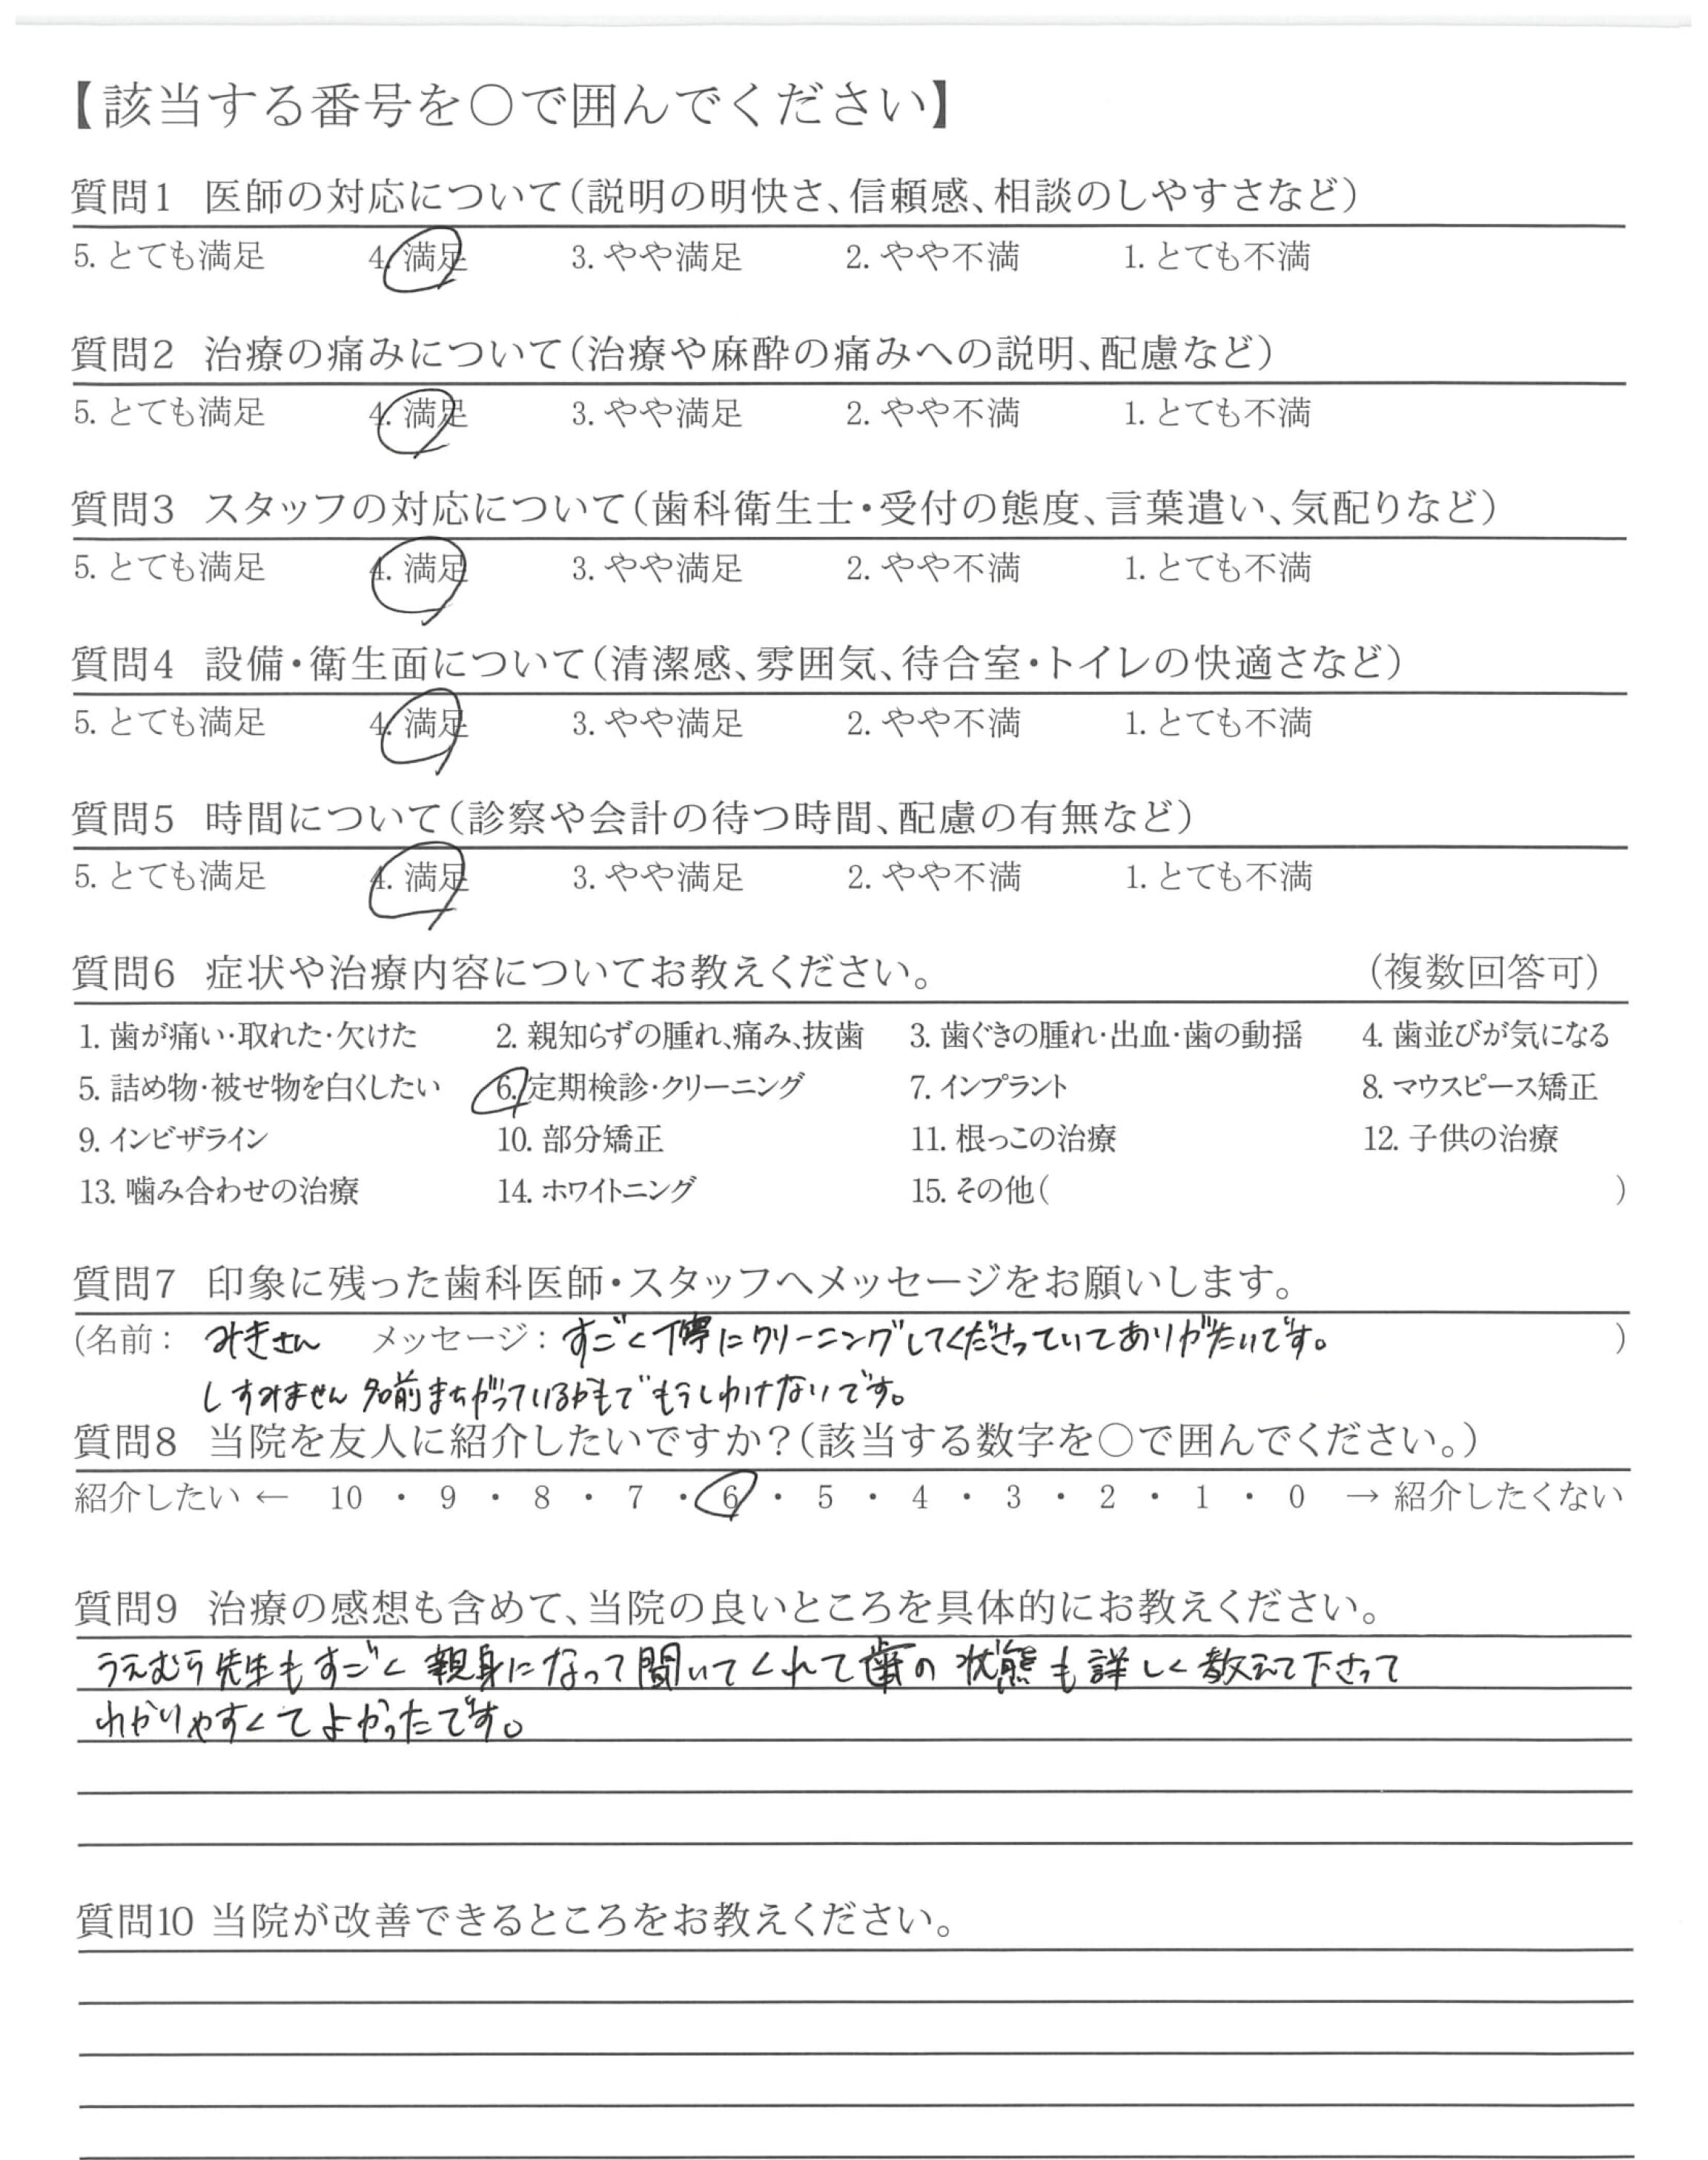 【該当する番号を○で囲んでください】
質問1 医師の対応について(説明の明快さ、信頼感、相談のしやすさなど)
5. とても満足 4. 満足 3. やや満足 2. やや不満 1. とても不満
質問2 治療の痛みについて(治療や麻酔の痛みへの説明、配慮など)
5. とても満足 4. 満足 3. やや満足 2. やや不満 1. とても不満
質問3 スタッフの対応について(歯科衛生士・受付の態度、言葉遣い、気配りなど)
5. とても満足 4. 満足 3. やや満足 2. やや不満 1. とても不満
質問4 設備・衛生面について(清潔感、雰囲気、待合室・トイレの快適さなど)
5. とても満足 4. 満足 3. やや満足 2. やや不満 1. とても不満
質問5 時間について(診察や会計の待つ時間、配慮の有無など)
5. とても満足 4. 満足 3. やや満足 2. やや不満 1. とても不満
質問6 症状や治療内容についてお教えください。 (複数回答可)
1. 歯が痛い・取れた・欠けた 2. 親知らずの腫れ、痛み、抜歯 3. 歯ぐきの腫れ・出血・歯の動揺 4. 歯並びが気になる
5. 詰め物・被せ物を白くしたい 6. 定期検診・クリーニング 7. インプラント 8. マウスピース矯正
9. インビザライン 10. 部分矯正 11. 根っこの治療 12. 子供の治療
13. 噛み合わせの治療 14. ホワイトニング 15. その他( )
質問7 印象に残った歯科医師・スタッフへメッセージをお願いします。
(名前: みきさん メッセージ: すごく丁寧にクリーニングしてくださっていてありがたいです。 )
しすみません 名前まちがっているかもでもうしわけないです。
質問8 当院を友人に紹介したいですか?(該当する数字を○で囲んでください。)
紹介したい ← 10 ・ 9 ・ 8 ・ 7 ・ 6 ・ 5 ・ 4 ・ 3 ・ 2 ・ 1 ・ 0 → 紹介したくない
質問9 治療の感想も含めて、当院の良いところを具体的にお教えください。
うえむら先生もすごく親身になって聞いてくれて歯の状態も詳しく教えて下さって
わかりやすくてよかったです。
質問10 当院が改善できるところをお教えください。